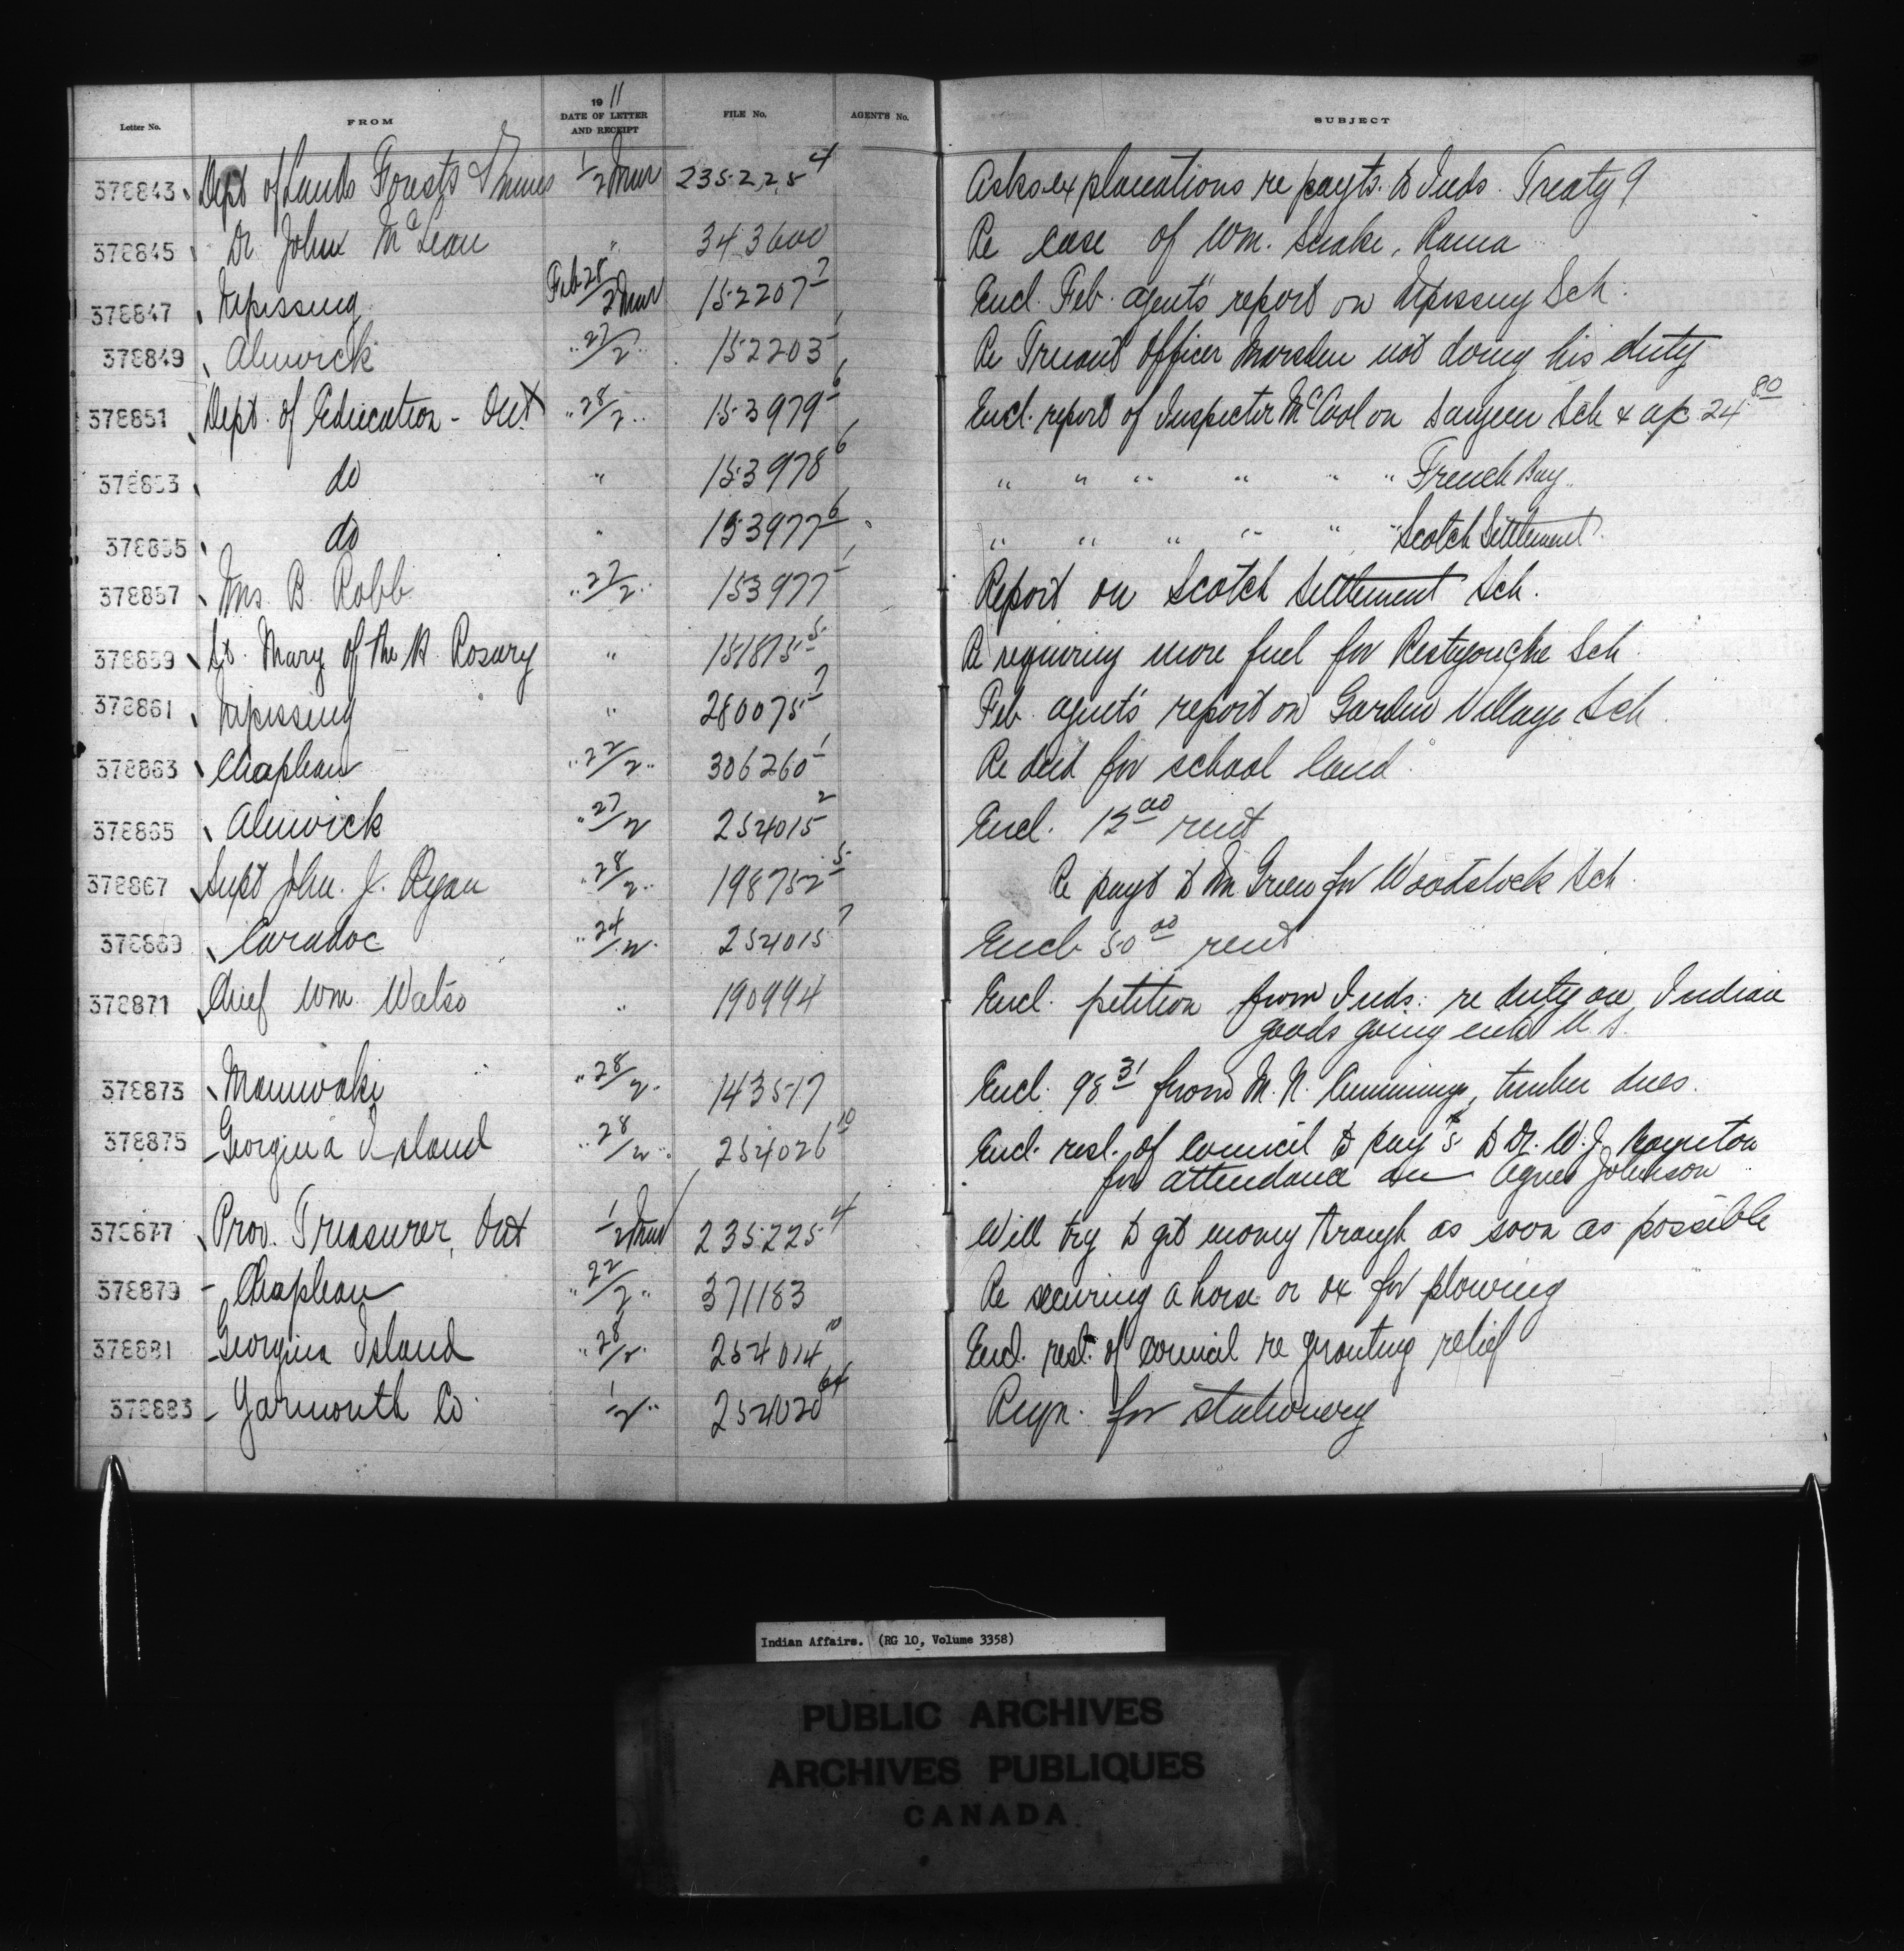 Letter No. FROM 1911 DATE OF LETTER AND RECEIPT FILE No. AGENTS No. SUBJECT
378843 Dept of Lands Forests & Mines 1/2 Mar 235225-4 Asks explanations re payts. to Inds. Treaty 9
378845 Dr John McLean " 343600 Re case of Wm. Snake, Rama
378847 Nipissing Feb 28/2 Mar 152207-2 Encl. Feb. agent's report on Nipissing Sch.
378849 Alnwick " 27/2 " 152203 Re Truant Officer Marsden not doing his duty
378851 Dept. of Education - Ont " 28/2 " 153979-6 Encl. report of Inspector McCool on Saugeen Sch & a/c 24.80
378853 do " 153978-6 " " " " " " French Bay
378855 do " 153977-6 " " " " " " Scotch Settlement
378857 Mrs. B. Robb " 27/2 " 153977 Report on Scotch Settlement Sch.
378859 St. Mary of the H. Rosary " 151875-5 Re requiring more fuel for Restigouche Sch.
378861 Nipissing " 280075-2 Feb. agent's report on Garden Village Sch.
378863 Chapleau " 22/2 " 306260-1 Re deed for school land
378865 Alnwick " 27/2 254015-2 Encl. 12.00 rent
378867 Supt John. J. Ryan " 28/2 " 198752-5 Re payt to Green for Woodstock Sch.
378869 Caradoc " 24/2 " 254015-7 Encl. 50.00 rent
378871 Chief Wm. Watso " 190994 Encl. petition from Inds. re duty on Indian
goods going into U.S.
378873 Maniwaki " 28/2 " 143517 Encl. 98.31 from M. N. Cummings, timber dues.
378875 Georgina Island " 28/2 " 254026-10 Encl. resl. of council to pay $5 to Dr. W. J.
for attendance on Agnes Johnson
378877 Prov. Treasurer, Ont 1/2 Mar 235225-4 Will try to get money through as soon as possible
378879 Chapleau " 22/2 " 371183 Re securing a horse or ox for plowing
378881 Georgina Island " 28/2 " 254014-10 Encl. resl. of council re granting relief
378883 Yarmouth Co. 1/2 " 254020-64 Reqn. for stationery
Indian Affairs. (RG 10, Volume 3358)
PUBLIC ARCHIVES
ARCHIVES PUBLIQUES
CANADA